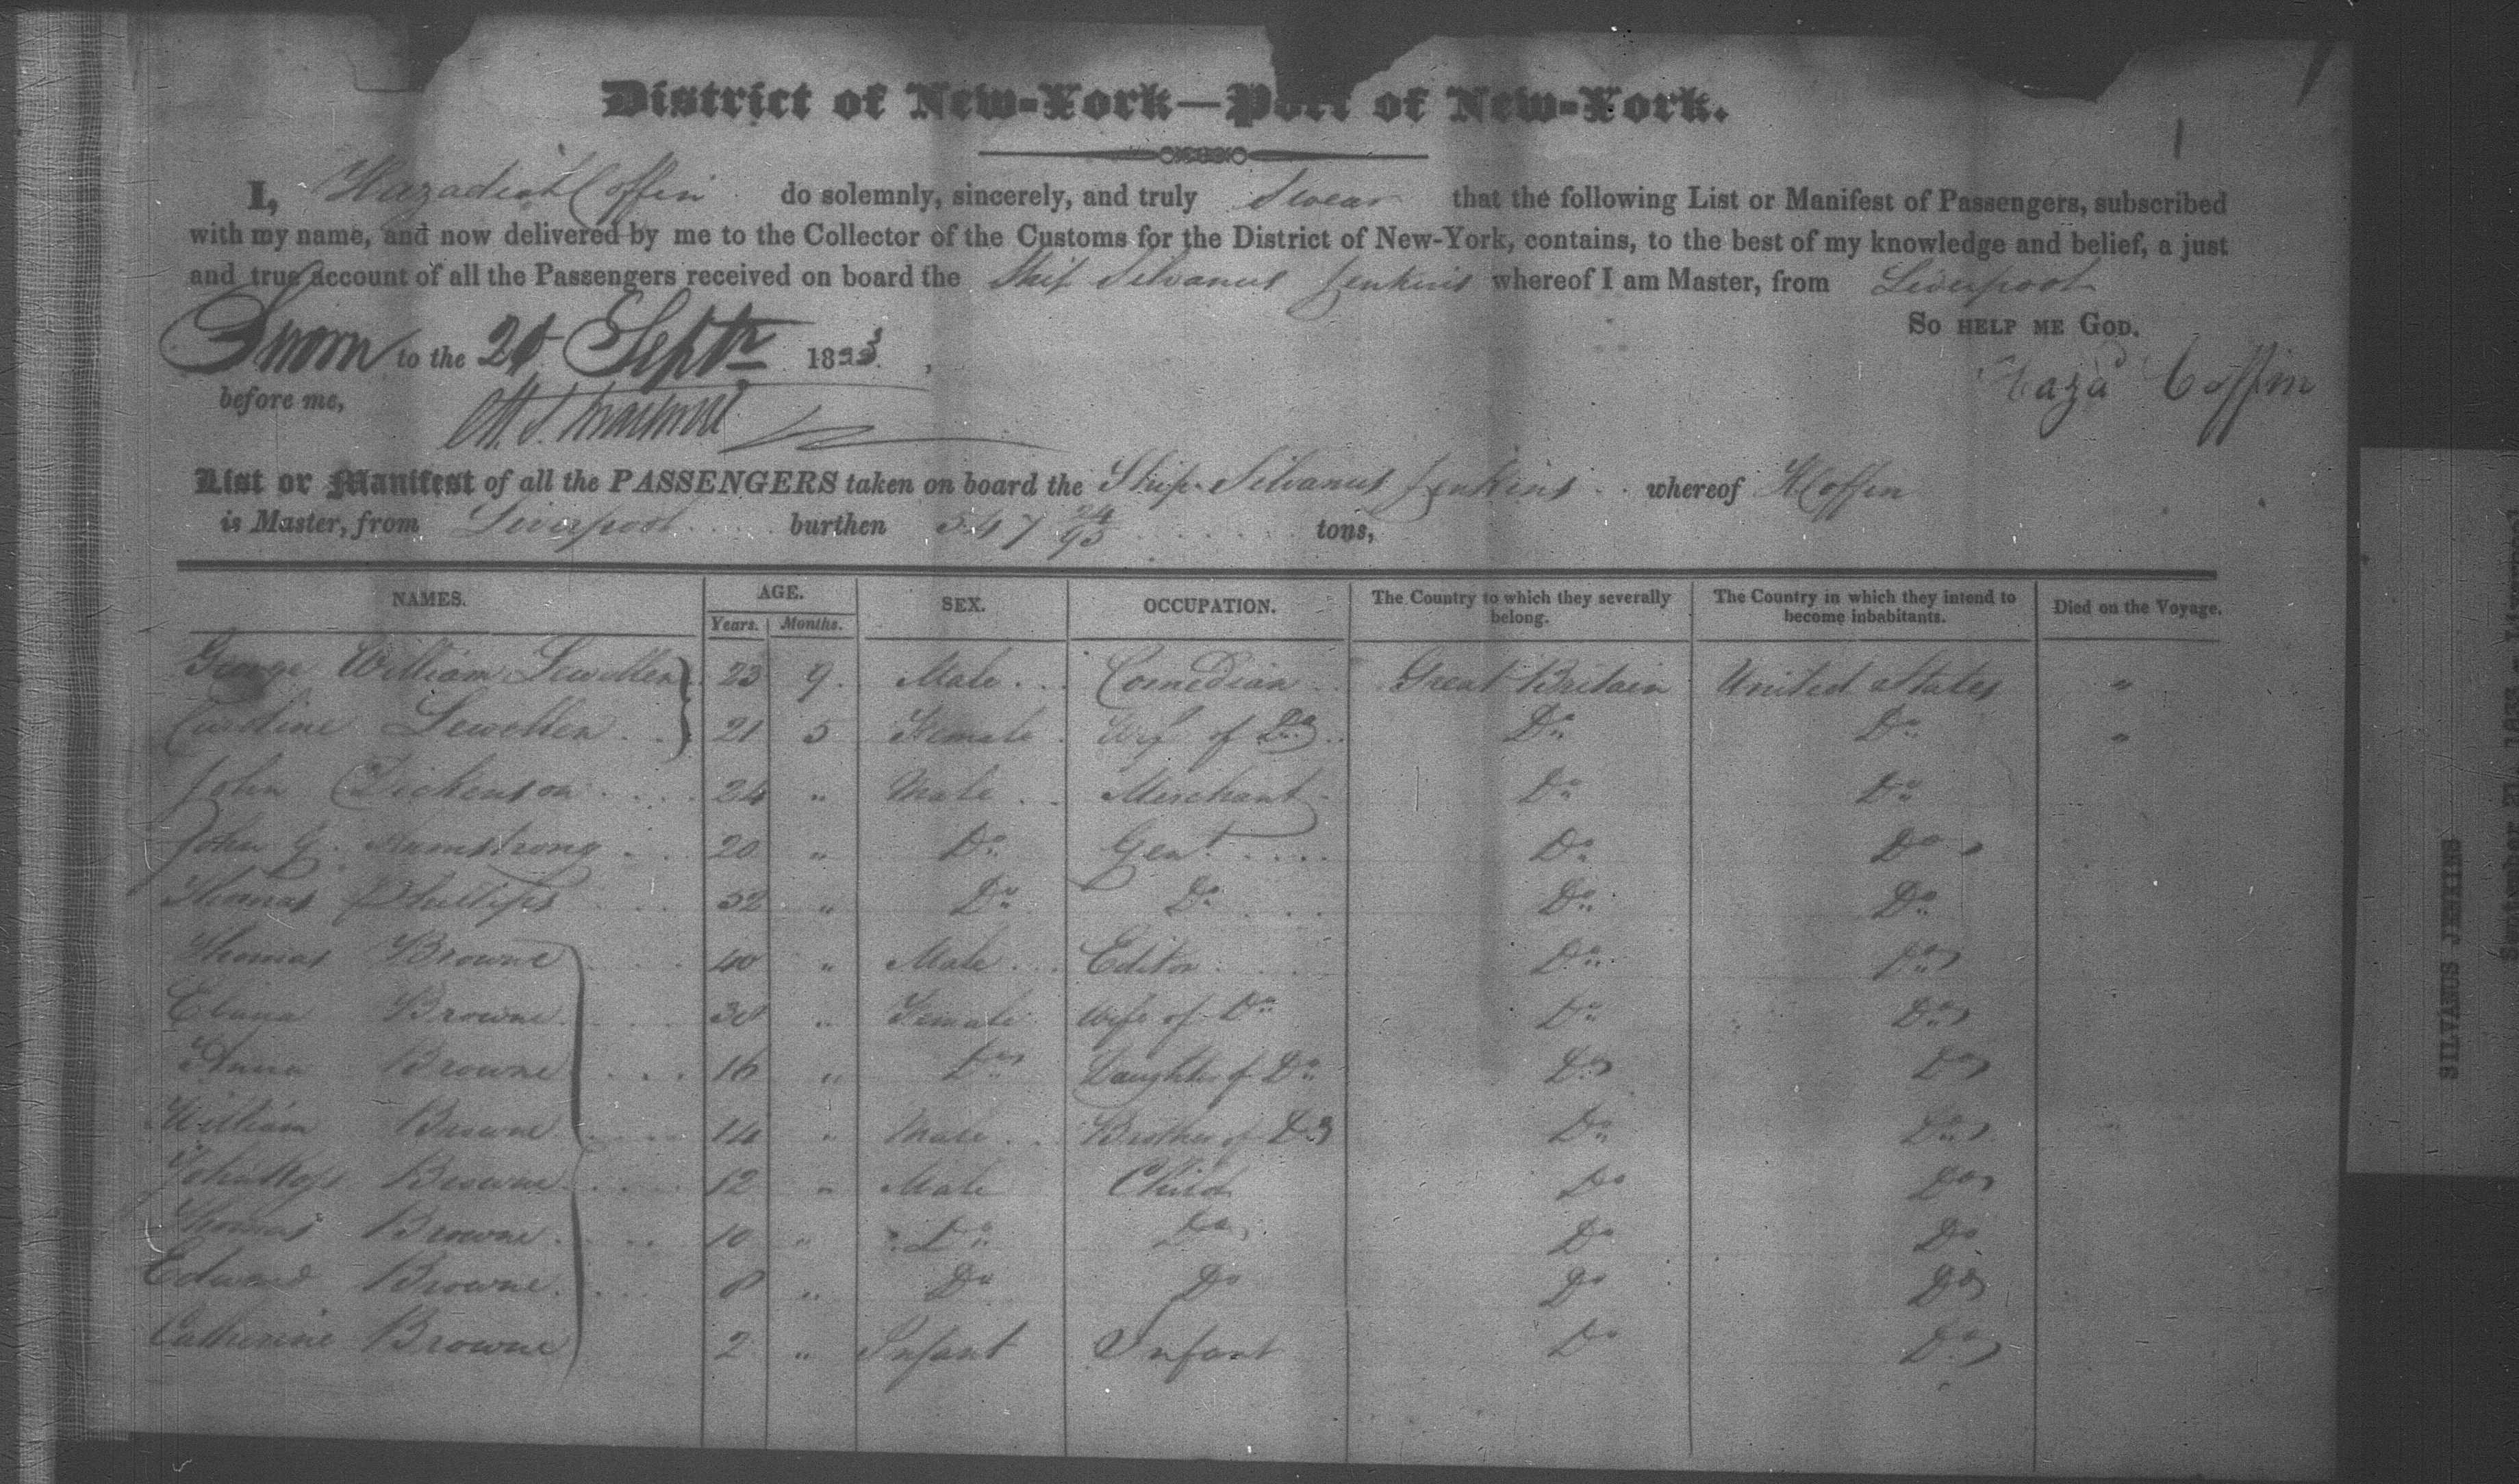 District of New-York—Port of New-York.
I, Hazadiah Coffin do solemnly, sincerely, and truly Swear that the following List or Manifest of Passengers, subscribed
with my name, and now delivered by me to the Collector of the Customs for the District of New-York, contains, to the best of my knowledge and belief, a just
and true account of all the Passengers received on board the Ship Silvanus Jenkins whereof I am Master, from Liverpool
So HELP ME GOD.
Sworn to the Septr 1833.
Haza Coffin
before me,
List or Manifest of all the PASSENGERS taken on board the Ship Silvanus Jenkins whereof H Coffin
is Master, from Liverpool burthen 547 24/95 tons,
NAMES. AGE. SEX. OCCUPATION. The Country to which they severally belong. The Country in which they intend to become inhabitants. Died on the Voyage.
Years. Months.
George William Lewellen 23 9 Male Comedian Great Britain United States "
Caroline Lewellen 21 5 Female Wife of Do Do Do "
John Dickenson 24 " Male Merchant Do Do
John G. Armstrong 20 " Do Gent Do Do
Thomas Phillips 32 " Do Do Do Do
Thomas Browne 40 " Male Editor Do Do
Browne 30 " Female Wife of Do Do Do
Anna Browne 16 " Do Daughter of Do Do Do
William Browne 14 " Male Brother of Do Do Do "
Browne 12 " Male Child Do Do
Thomas Browne 10 " Do Do Do Do
Edward Browne 8 " Do Do Do Do
Catherine Browne 2 " Infant Infant Do Do
SILVANUS JENKINS